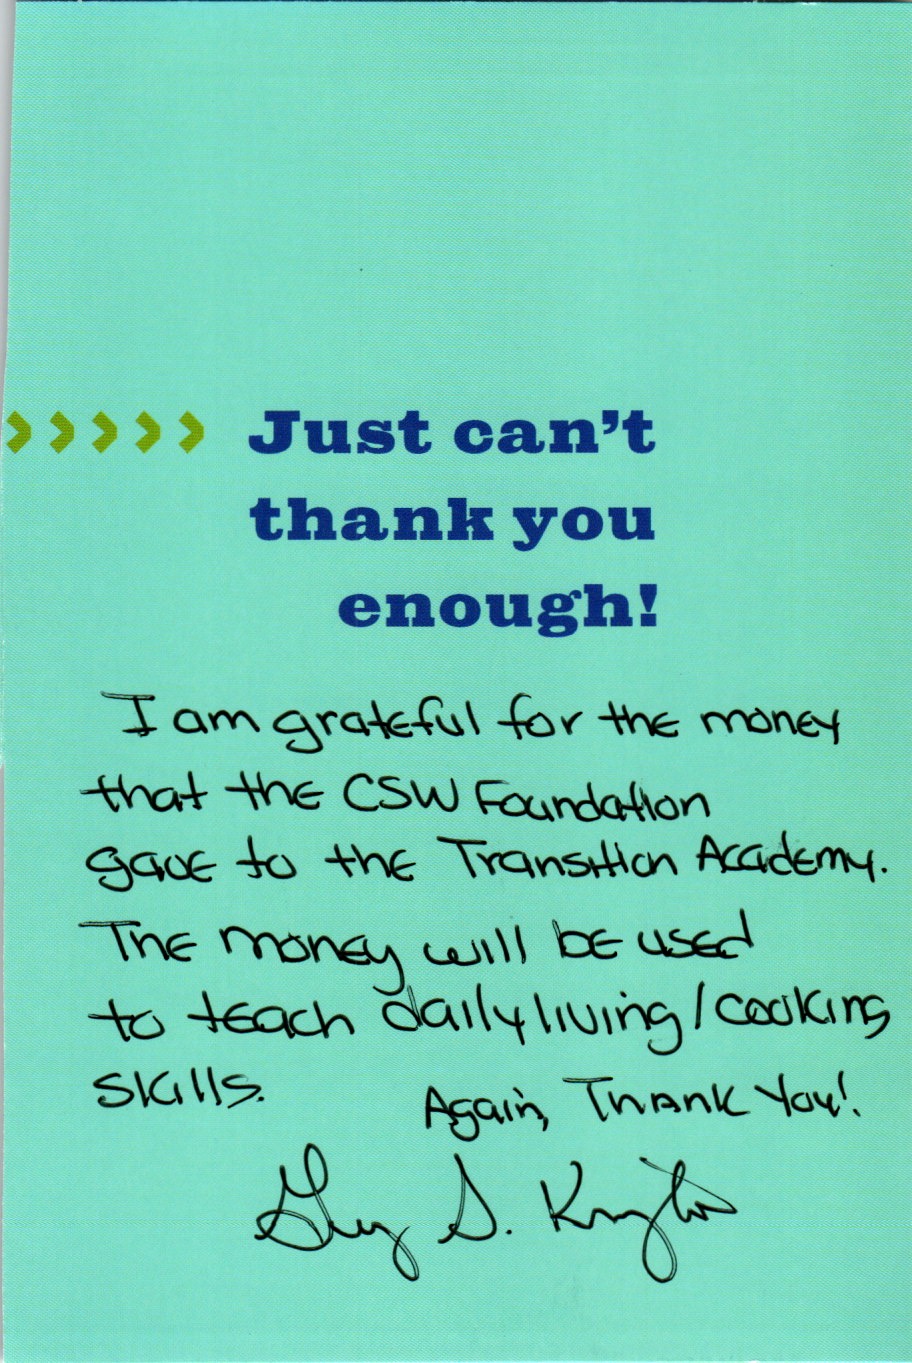 Just can't
thank you
enough!
I am grateful for the money
that the CSW Foundation
gave to the Transition Academy.
The money will be used
to teach daily living/cooking
skills.
Again, Thank You!
S.